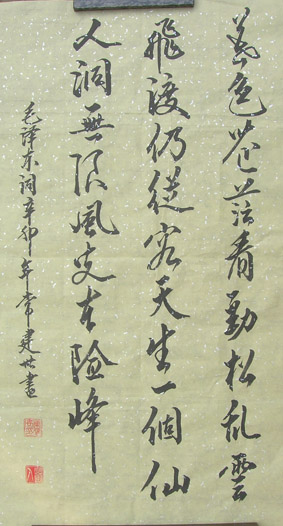 暮色苍茫看勁松乱雲
飛渡仍從容天生一個仙
人洞無限風光在險峰
毛泽东词辛卯年常建世書